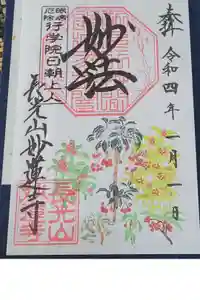 奉拝
令和四年一月一日
妙法
眼病
厄除
行学院日朝上人
長光山妙蓮寺
長光山